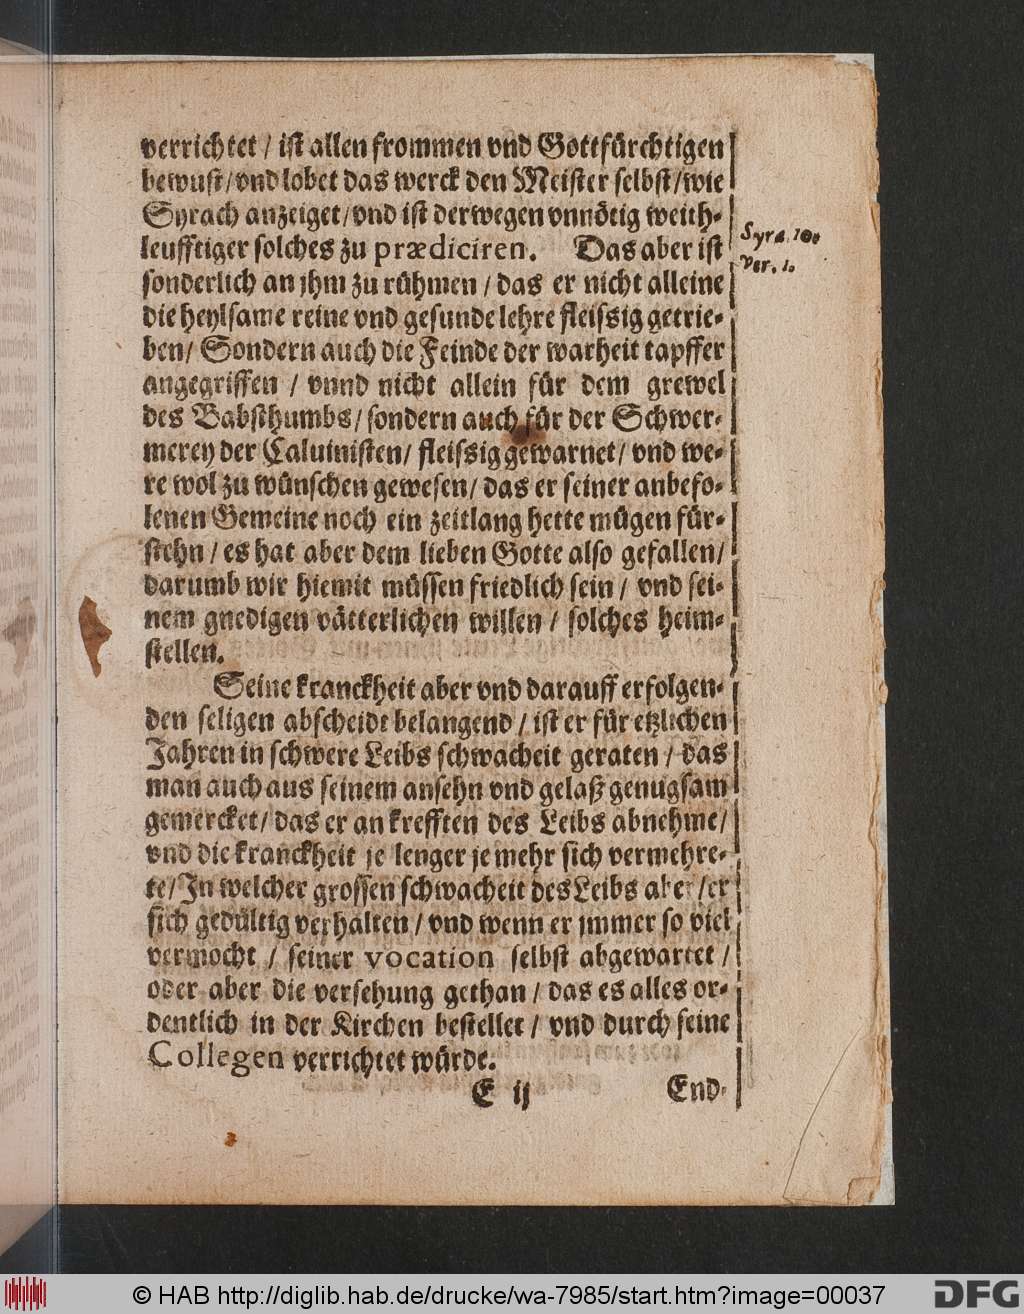 verrichtet / ist allen frommen vnd Gottfürchtigen
bewust / vnd lobet das werck den Meister selbst / wie
Syrach anzeiget / vnd ist derwegen vnnötig weith-
leufftiger solches zu prædiciren. Das aber ist
Syra. 10.
ver. 1.
sonderlich an jhm zu rühmen / das er nicht alleine
die heylsame reine vnd gesunde lehre fleissig getrie-
ben / Sondern auch die Feinde der warheit tapffer
angegriffen / vnnd nicht allein für dem grewel
des Babsthumbs / sondern auch für der Schwer-
merey der Caluinisten / fleissig gewarnet / vnd we-
re wol zu wünschen gewesen / das er seiner anbefo-
lenen Gemeine noch ein zeitlang hette mügen für-
stehn / es hat aber dem lieben Gotte also gefallen /
darumb wir hiemit müssen friedlich sein / vnd sei-
nem gnedigen vätterlichen willen / solches heim-
stellen.
Seine kranckheit aber vnd darauff erfolgen-
den seligen abscheidt belangend / ist er für etzlichen
Jahren in schwere Leibs schwacheit geraten / das
man auch aus seinem ansehn vnd gelaß genugsam
gemercket / das er an krefften des Leibs abnehme /
vnd die kranckheit je lenger je mehr sich vermehre-
te / In welcher grossen schwacheit des Leibs aber / er
sich gedültig verhalten / vnd wenn er jmmer so viel
vermocht / seiner vocation selbst abgewartet /
oder aber die versehung gethan / das es alles or-
dentlich in der Kirchen bestellet / vnd durch seine
Collegen verrichtet würde.
E ij End-
© HAB http://diglib.hab.de/drucke/wa-7985/start.htm?image=00037 DFG